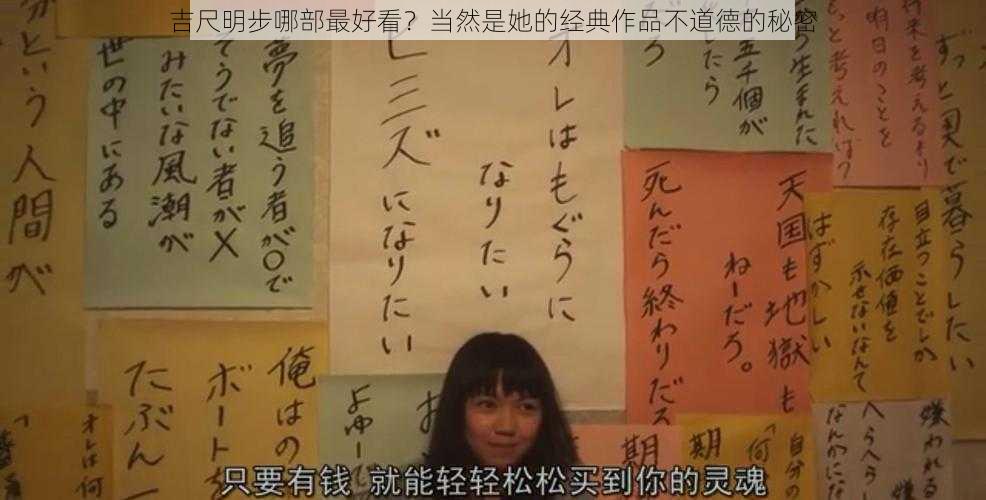 吉尺明步哪部最好看？当然是她的经典作品不道德的秘密
ずっと一人で暮らしたい
目立つことでしか
存在価値を
示せないなんて
はずかしい
将来を考えるより
明日のことを
もっと考えればっ
ら生まれた
五千個が
したら
だろ
天国も地獄も
ねーだろ。
死んだら終わりだろ
オレはもぐらに
なりたい
ミミズになりたい
夢を追う者が〇で
そうでない者がX
みたいな風潮が
世の中にある
という人間が
俺はの
ボートを
たぶん
オレは何
よゆー
お
期
期
自分の
「何
嫌われる
へらへら
なんかにな
只要有钱 就能轻轻松松买到你的灵魂